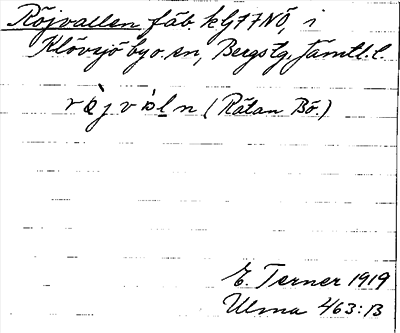 Röjvallen fäb. kG77NÖ, i
Klövsjö byo. sn, Bergs tg. Jämtl. l.
röjvàln (Rätan Bö.)
E. Terner 1919
Ulma 463:13